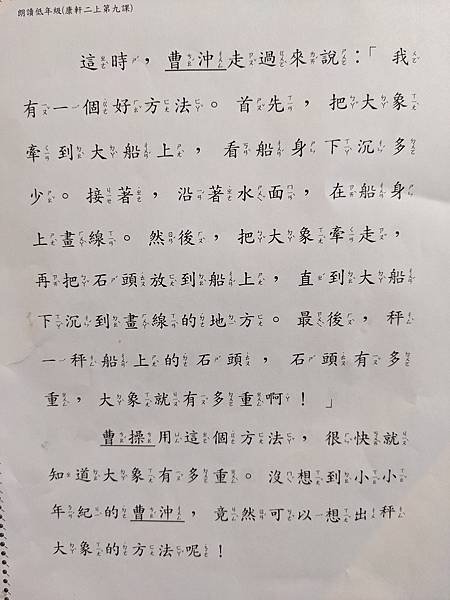 朗讀低年級(康軒二上第九課)
這時，曹沖走過來說：「我
有一個好方法。首先，把大象
牽到大船上，看船身下沉多
少。接著，沿著水面，在船身
上畫線。然後，把大象牽走，
再把石頭放到船上，直到大船
下沉到畫線的地方。最後，秤
一秤船上的石頭，石頭有多
重，大象就有多重啊！」
曹操用這個方法，很快就
知道大象有多重。沒想到小小
年紀的曹沖，竟然可以想出秤
大象的方法呢！